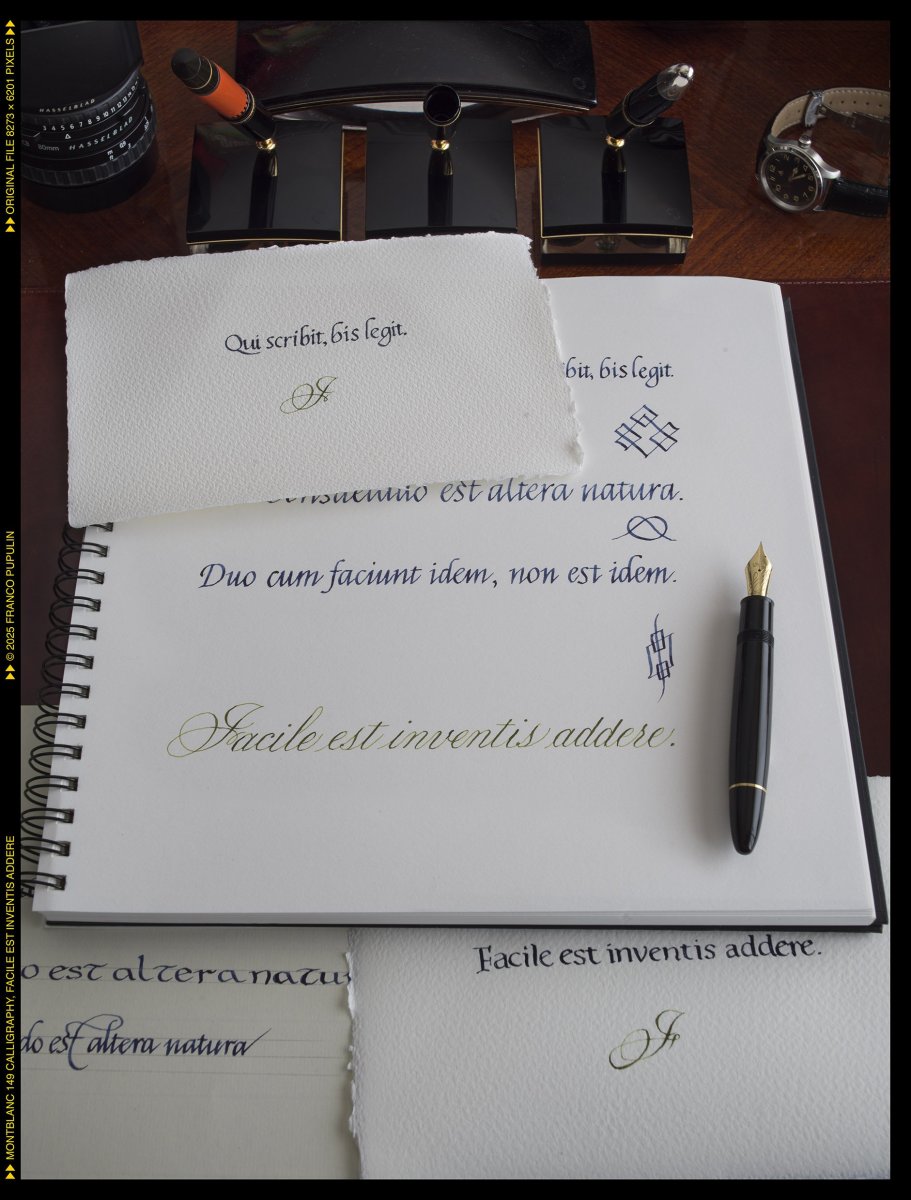 ORIGINAL FILE 8273 × 6201 PIXELS
© 2025 FRANCO PUPULIN
MONTBLANC 149 CALLIGRAPHY, FACILE EST INVENTIS ADDERE
HASSELBLAD
3 4 5 6 7 8 9 10
80mm HASSELBLAD
Qui scribit, bis legit.
F
bis legit.
est altera natura.
Duo cum faciunt idem, non est idem.
Facile est inventis addere.
Facile est inventis addere.
F
est altera
est altera natura